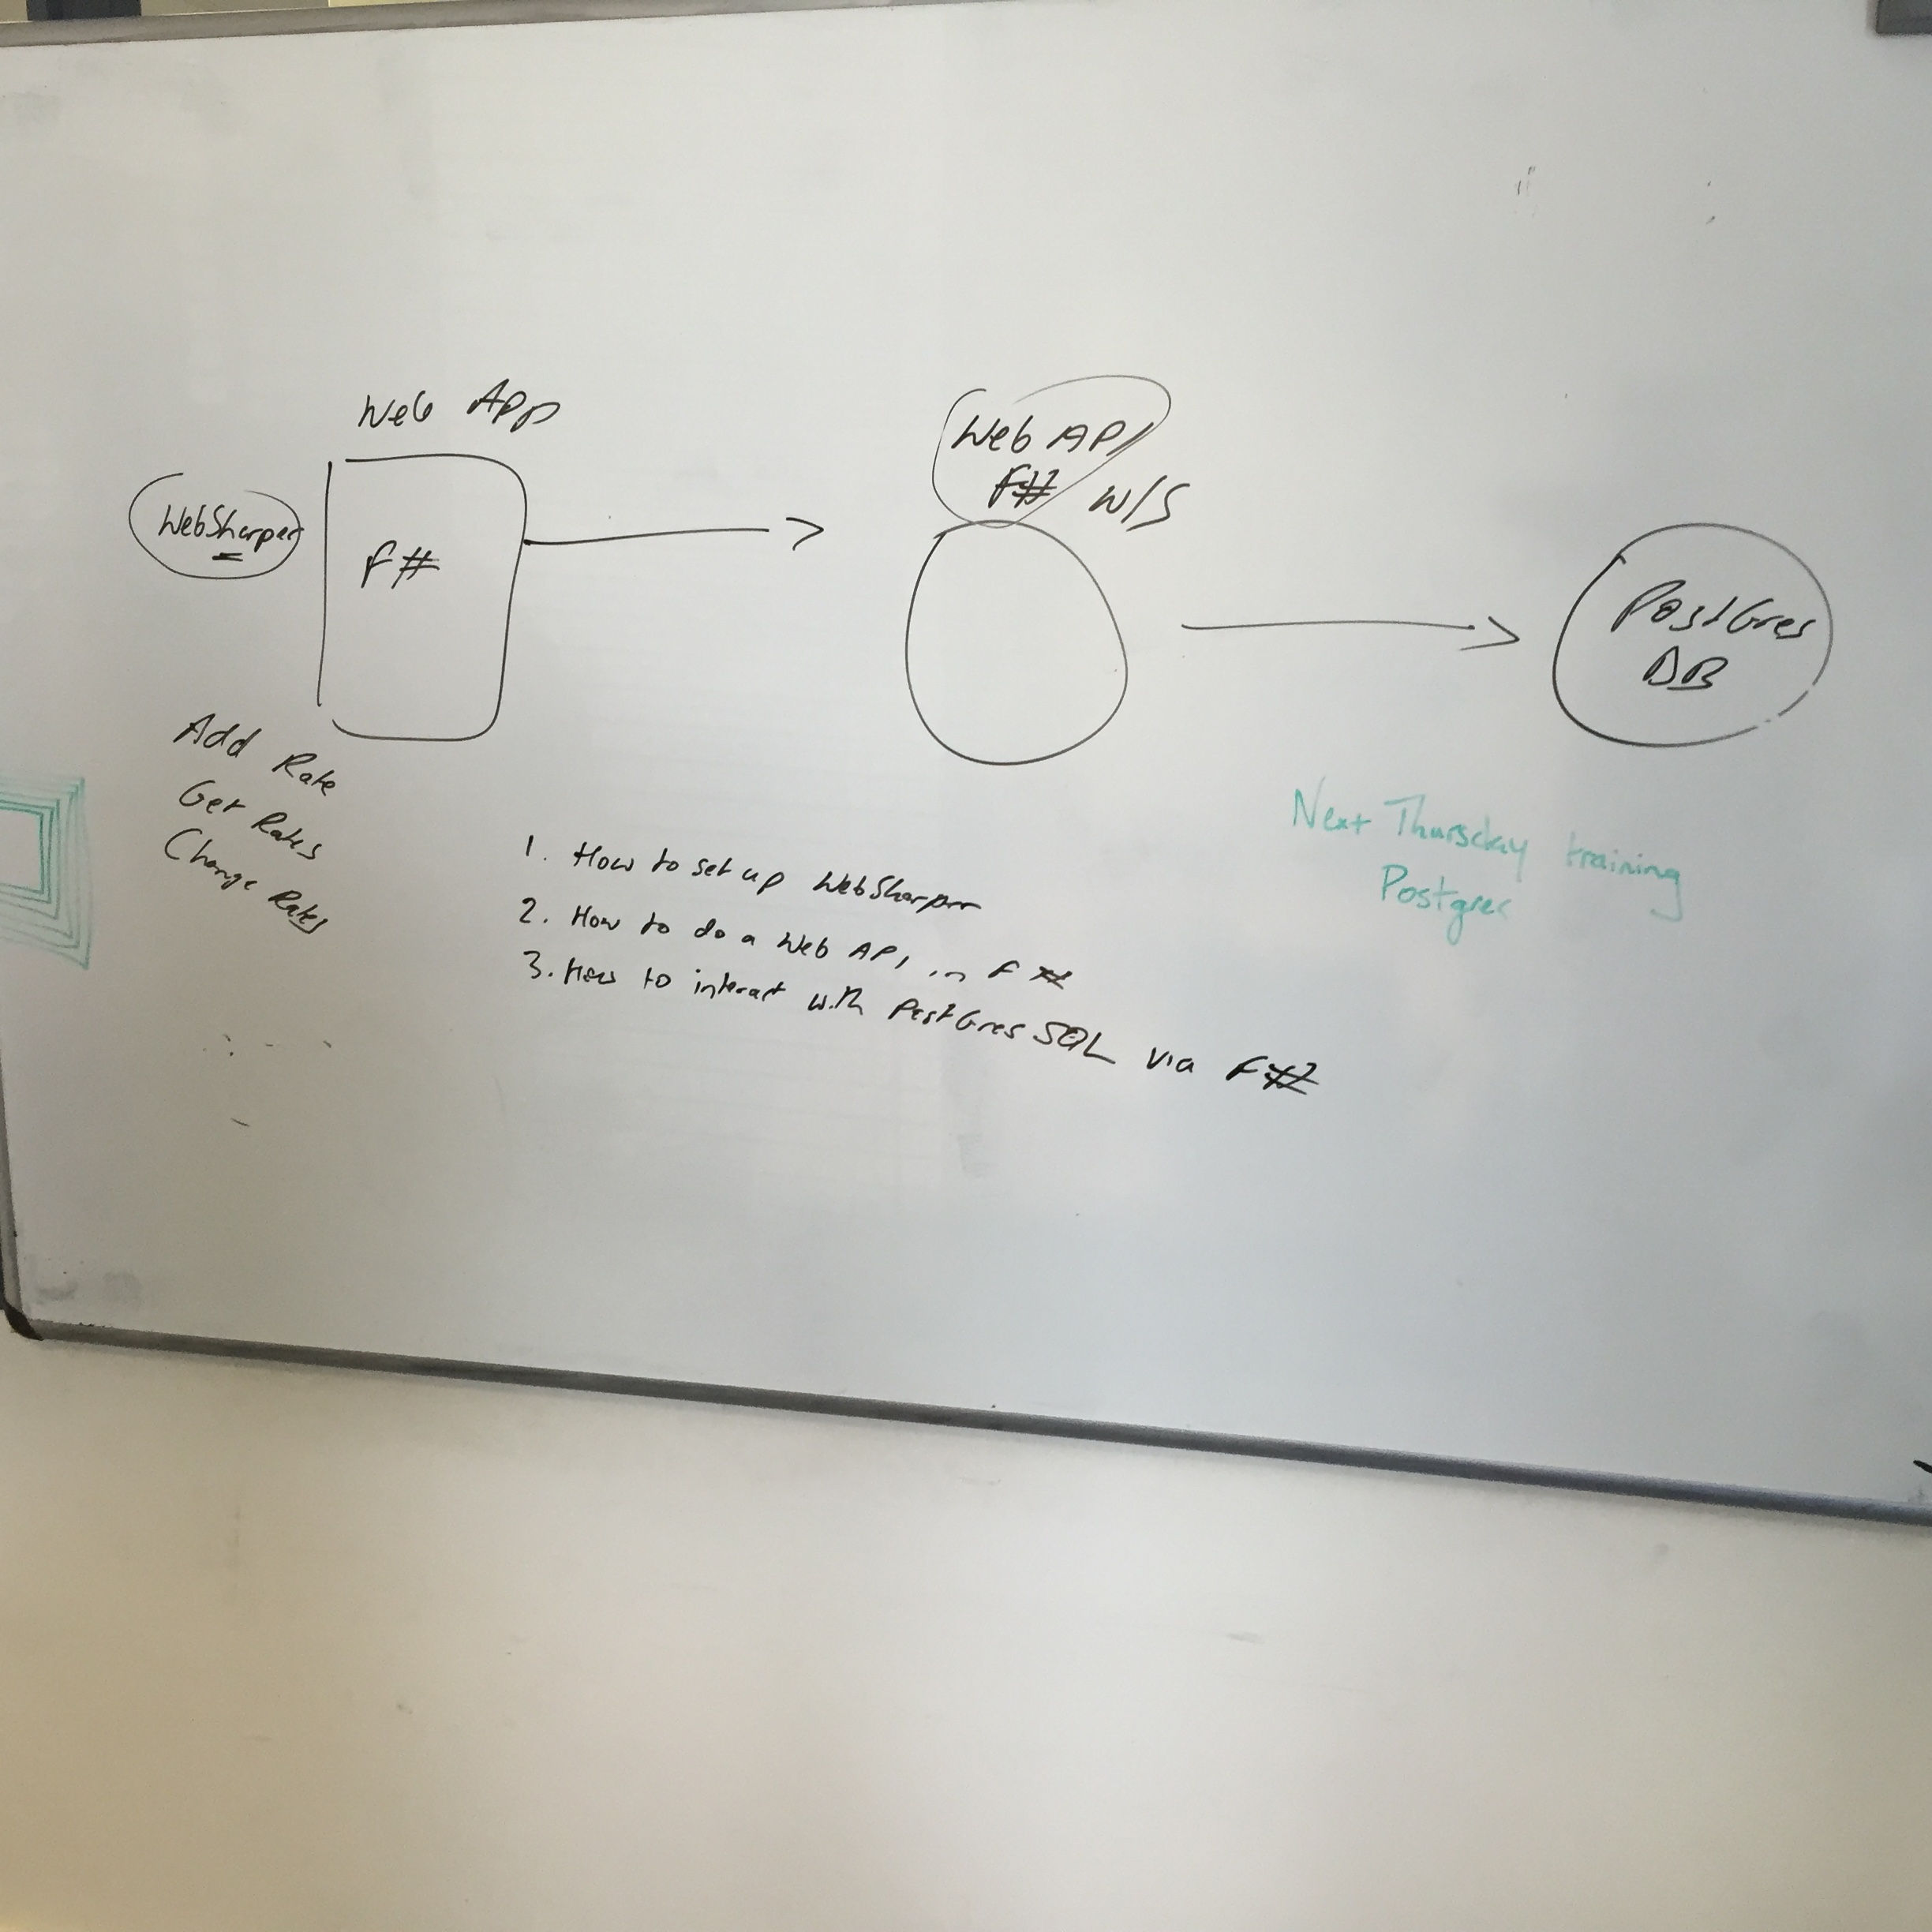 Web App
WebSharper
F#
Web API
F# W/S
PostGres
DB
Add Rate
Get Rates
Change Rates
1. How to set up WebSharper
2. How to do a Web API in F#
3. How to interact with PostGres SQL via F#
Next Thursday training
Postgres